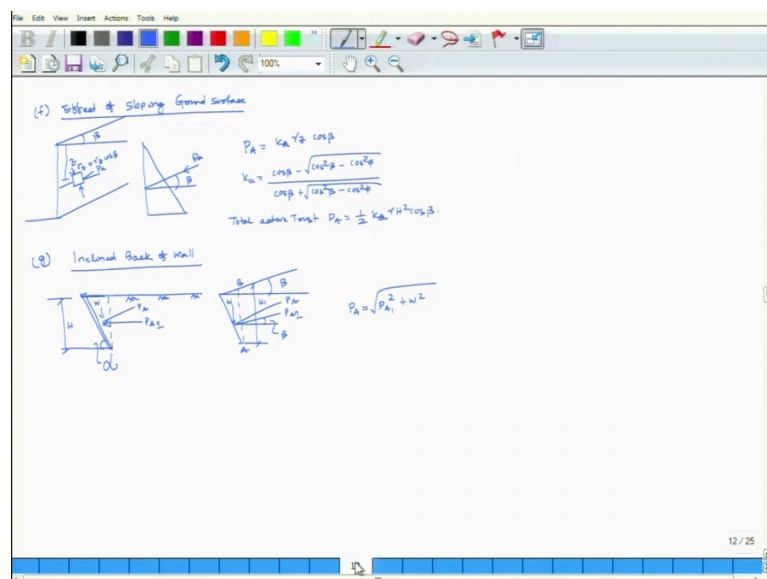 File Edit View Insert Actions Tools Help
B I
100%
(f) Effect of Sloping Ground Surface
β
z
σz = γz cosβ
PA
PA
β
PA = Ka γz cosβ
Ka = cosβ - √cos²β - cos²φ / cosβ + √cos²β - cos²φ
Total active Trust PA = 1/2 Ka γH² cosβ.
(g) Inclined Back of Wall
H
W
PA
PA1
α
B
β
W
H1
PA
PA1
β
A
PA = √PA1² + W²
12 / 25